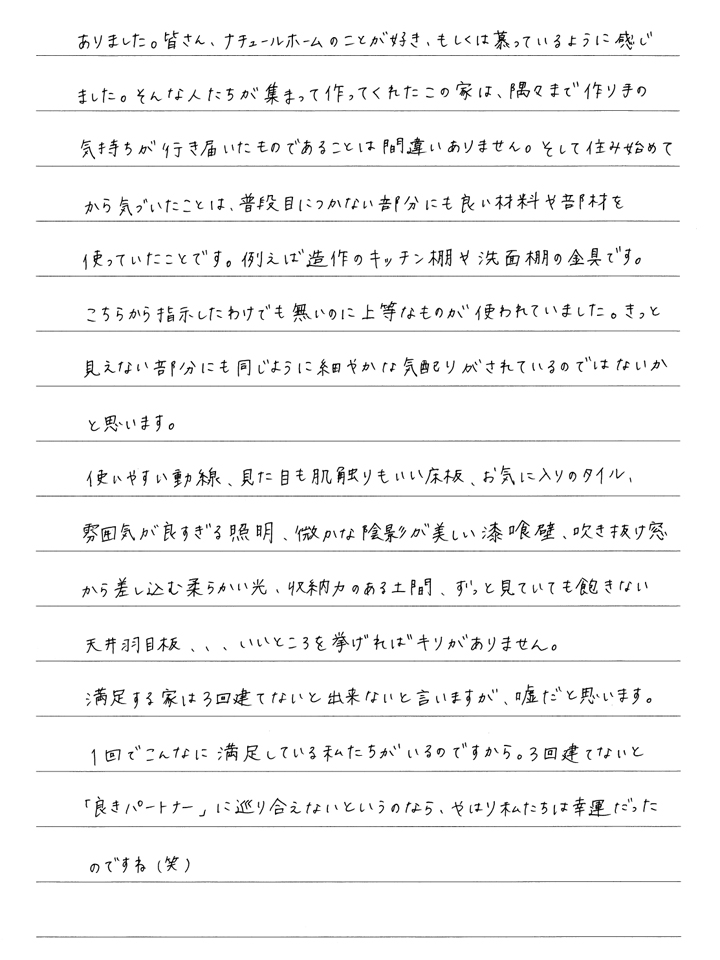 ありました。皆さん、ナチュールホームのことが好き、もしくは慕っているように感じ
ました。そんな人たちが集まって作ってくれたこの家は、隅々まで作り手の
気持ちが行き届いたものであることは間違いありません。そして住み始めて
から気づいたことは、普段目につかない部分にも良い材料や部材を
使っていたことです。例えば造作のキッチン棚や洗面棚の金具です。
こちらから指示したわけでも無いのに上等なものが使われていました。きっと
見えない部分にも同じように細やかな気配りがされているのではないか
と思います。
使いやすい動線、見た目も肌触りもいい床板、お気に入りのタイル、
雰囲気が良すぎる照明、微かな陰影が美しい漆喰壁、吹き抜け窓
から差し込む柔らかい光、収納力のある土間、ずっと見ていても飽きない
天井羽目板、、、いいところを挙げればキリがありません。
満足する家は3回建てないと出来ないと言いますが、嘘だと思います。
1回でこんなに満足している私たちがいるのですから。3回建てないと
「良きパートナー」に巡り合えないというのなら、やはり私たちは幸運だった
のですね(笑)